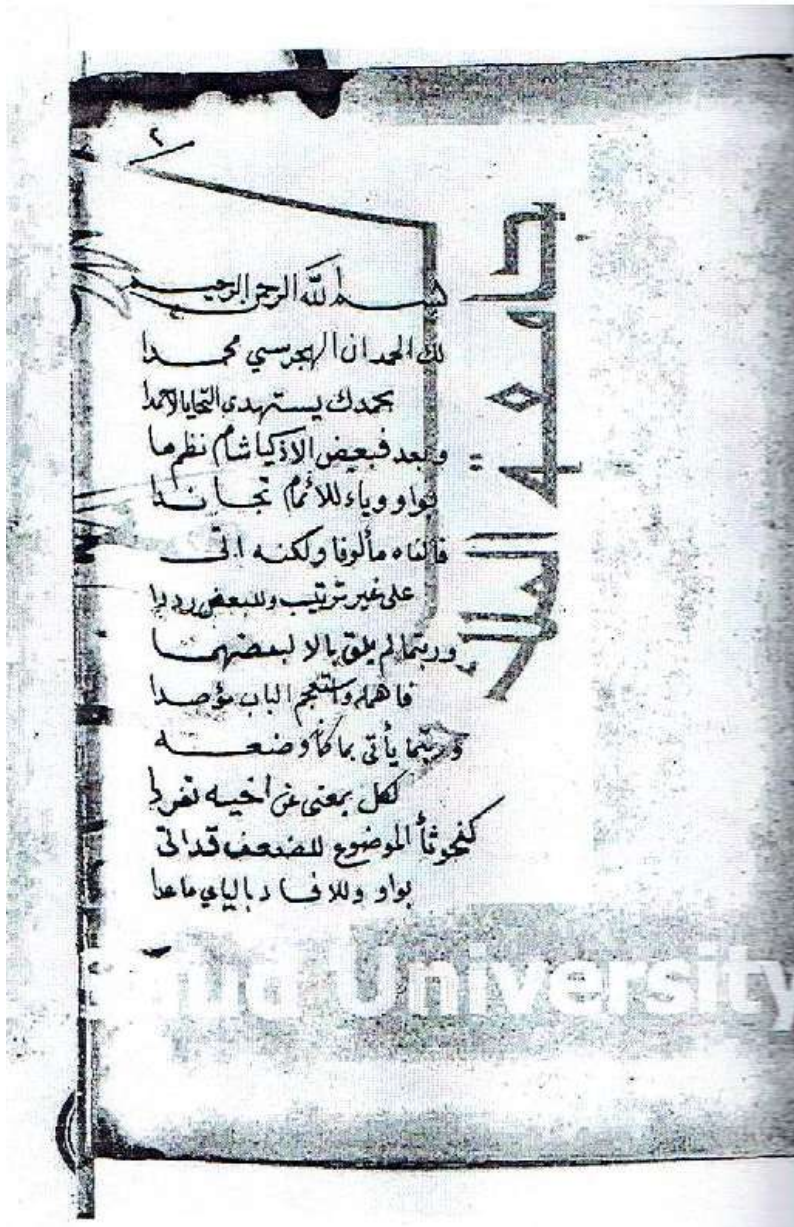 ٢
بسم الله الرحمن الرحيم
لك الحمد ان الهجرسي محمدا
بحمدك يستهدى التحايا لاحمدا
وبعد فبعض الاذكيا شام نظم ما
بواو وياء للائمام
فالفاه مألوفا ولكنه اتى
على غير ترتيب وللبعض رددا
وربتما لم يلق بالا لبعضهما
فاهمله واستعجم الباب مؤصدا
وربتما يأتى بما وضعه
لكل بمعنى عن اخيه تفردا
كنحو ثأ الموضوع للضعف قد اتى
بواو وللافساد بالياء ما عدا
جامعة الملك
Saud University